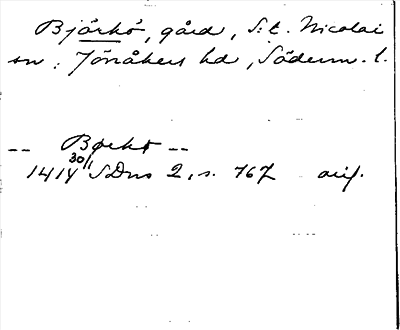 Björkö, gård, S:t. Nicolai
sn. Jönåkers hd, Söderm. l.
-- Børkø --
1414 30/1 SDns 2, s. 767 orig.